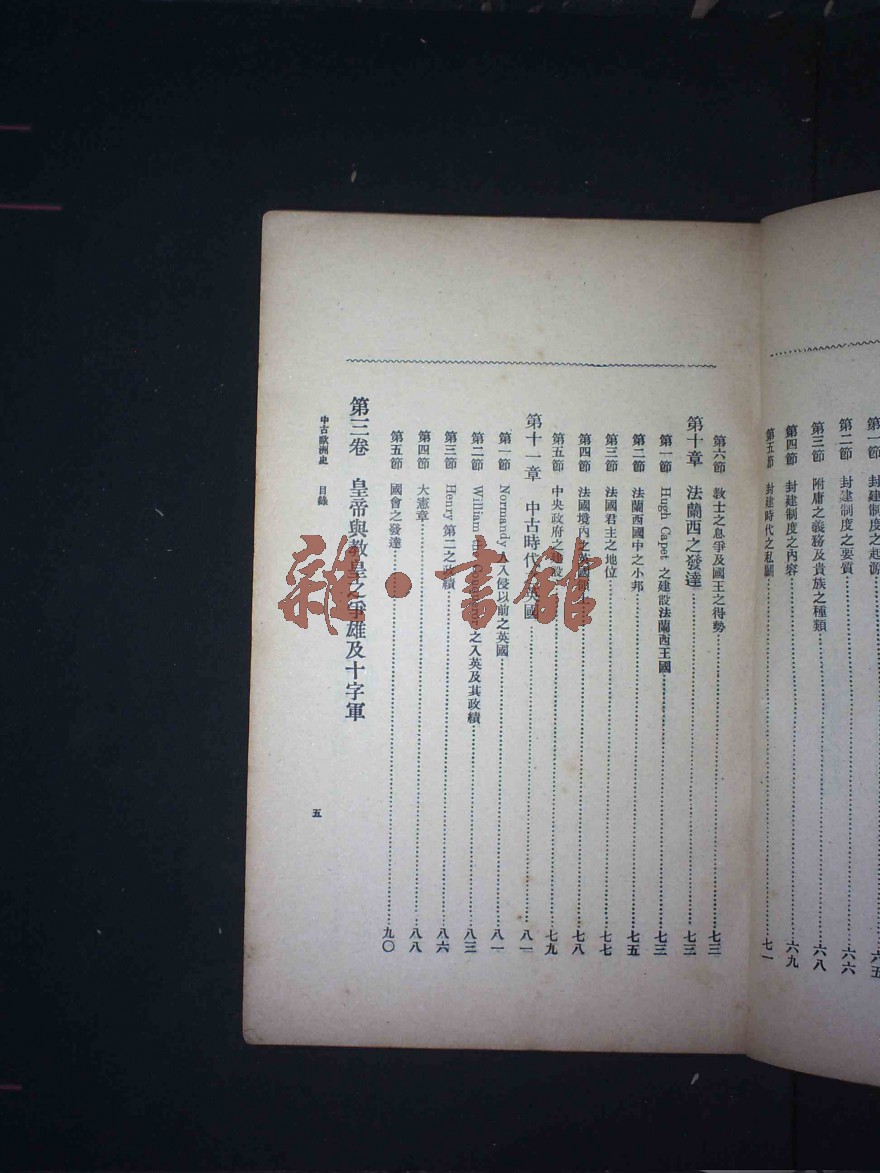 第一節 封建制度之起源……六五
第二節 封建制度之要質……六六
第三節 附庸之義務及貴族之種類……六八
第四節 封建制度之內容……六九
第五節 封建時代之私鬭……七一
第六節 教士之息爭及國王之得勢……七三
第十章 法蘭西之發達……七三
第一節 Hugh Capet 之建設法蘭西王國……七三
第二節 法蘭西國中之小邦……七五
第三節 法國君主之地位……七七
第四節 法國境內之英國領土……七八
第五節 中央政府之建設……七九
第十一章 中古時代之英國……八一
第一節 Normandy 人入侵以前之英國……八一
第二節 William the Conqueror 之入英及其政績……八三
第三節 Henry 第二之政績……八六
第四節 大憲章……八八
第五節 國會之發達……九〇
第三卷 皇帝與教皇之爭雄及十字軍
中古歐洲史 目錄
五
雜·書館